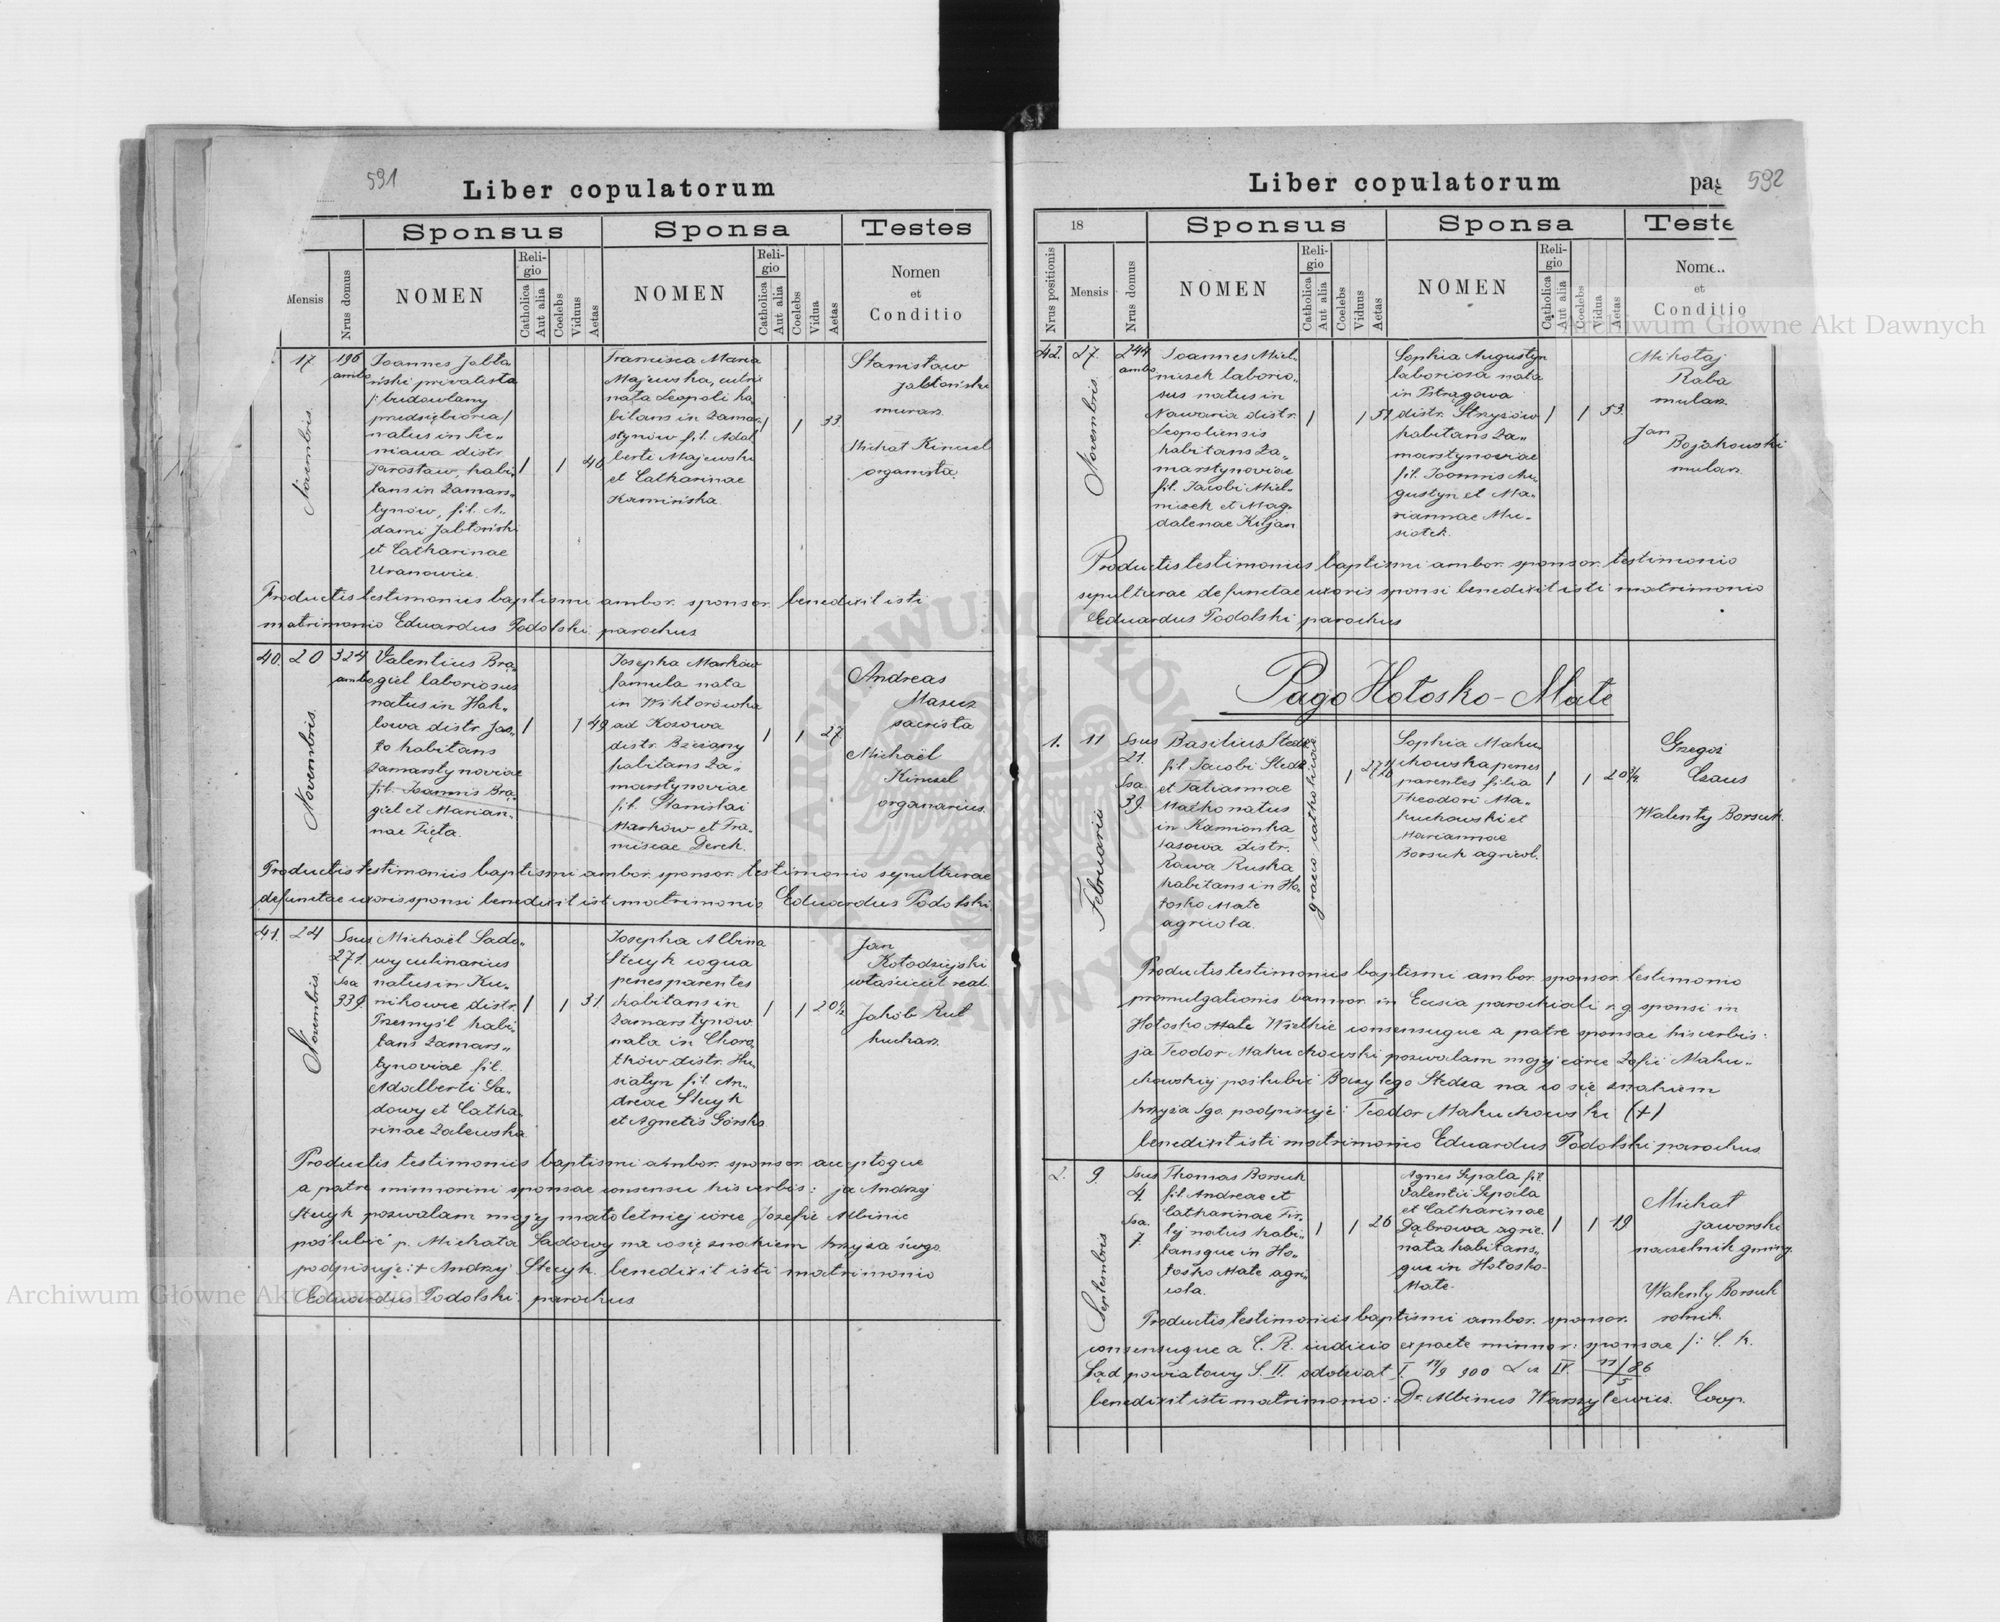 591
Liber copulatorum
Sponsus
Sponsa
Testes
Mensis
Nrus domus
NOMEN
Religio
Catholica
Aut alia
Coelebs
Viduus
Aetas
NOMEN
Religio
Catholica
Aut alia
Coelebs
Vidua
Aetas
Nomen
et
Conditio
17
Novembris.
196
ambo
Joannes Jabło„
ński privatista
/: budowlany
przedsiębiorca/
natus in Sie„
niawa distr.
Jarosław, habi„
tans in Zamars„
tynów, fil. A„
dami Jabłoński
et Catharinae
Uranowicz.
1 1 40
Francisca Maria
Majewska,
nata Leopoli ha„
bitans in Zamar„
stynów fil. Adal
berti Majewski
et Catharinae
Kamińska.
1 1 33
Stanisław
Jabłoński
murarz
Michał Kimsel
organista.
Productis testimoniis baptismi ambor. sponsor. benedixit isti
matrimonio Eduardus Podolski parochus
40. 20
Novembris.
324
ambo
Valentius Brą„
giel laboriosus
natus in Hak„
lowa distr. Jas„
ło habitans
Zamarstynoviae
fil. Joannis Brą„
giel et Marian„
nae Pięta.
1 1 49
Josepha Marków
famula nata
in Wiktorówka
ad Kozowa
distr. Brzeżany
habitans Za„
marstynoviae
fil. Stanislai
Marków et Fra„
nciscae Derek.
1 1 27
Andreas
Mazur
sacrista
Michaël
Kimsel
organarius.
Productis testimoniis baptismi ambor. sponsor. testimonio sepulturae
defunctae uxoris sponsi benedixit isti matrimonio. Eduardus Podolski.
41. 24
Novembris.
Ssus
271.
Ssa
339.
Michaël Sado„
wy culinarius
natus in Ku„
nikowce distr.
Przemyśl habi„
tans Zamars„
tynoviae fil.
Adalberti Sa„
dowy et Catha„
rinae Zalewska
1 1 31
Josepha Albina
Stecyk coqua
penes parentes
habitans in
Zamarstynów
nata in Choro„
stków distr. Hu„
siatyn fil. An„
dreae Stecyk
et Agnetis Górska.
1 1 20½
Jan
Kołodziejski
właściciel real.
Jakób Rut
kucharz.
Productis testimoniis baptismi ambor. sponsor. acceptoque
a patre minoreni sponsae consensu his verbis: ja Andrzej
Stecyk pozwalam mojej małoletniej córce Józefie Albinie
poślubić p. Michała Sadowy na co się znakiem krzyża świgo.
podpisuję: + Andrzej Stecyk. benedixit isti matrimonio
Eduardus Podolski. parochus
592
Liber copulatorum
pag
18
Sponsus
Sponsa
Teste
Nrus positionis
Mensis
Nrus domus
NOMEN
Religio
Catholica
Aut alia
Coelebs
Viduus
Aetas
NOMEN
Religio
Catholica
Aut alia
Coelebs
Vidua
Aetas
Nome
et
Conditio
42. 27.
Novembris.
244
ambo
Joannes Miel„
niczek laborio„
sus natus in
Nawaria distr.
Leopoliensis
habitans Za„
marstynoviae
fil. Jacobi Miel„
niczek et Mag„
dalenae Kiljan
1 1 51
Sophia Augustyn
laboriosa nata
in Pstrągowa
distr. Strzyżów
habitans Za„
marstynoviae
fil. Joannis Au„
gustyn et Ma„
riannae Mu„
siołek.
1 1 53
Mikołaj
Raba
mularz.
Jan
Bojakowski
mularz.
Productis testimoniis baptismi ambor. sponsor. testimonio
sepulturae defunctae uxoris sponsi benedixit isti matrimonio
Eduardus Podolski parochus
Pago Hołosko - Małe
1. 11
Februarii
Ssus
21.
Ssa
39.
Basilius Stedza
fil. Jacobi Stedza
et Tatiannae
Maćko natus
in Kamionka
Lasowa distr.
Rawa Ruska
habitans in Ho„
łosko Małe
agricola.
graeco catholicae
1
Sophia Maku„
chowska penes
parentes filia
Theodori Ma„
kuchowski et
Mariannae
Borsuk agricol.
1 1 20¾
Grzegoż
Czaus
Walenty Borsuk.
Productis testimoniis baptismi ambor. sponsor. testimonio
promulgationis bannor. in Ecclsia parochiali r. g. sponsi in
Hołosko Małe Wielkie consensuque a patre sponsae his verbis:
ja Teodor Makuchowski pozwalam mojej córce Zofii Maku„
chowskiej poślubić Bazylego Stedza na co się znakiem
krzyża Sgo. podpisuję: Teodor Makuchowski (+)
benedixit isti matrimonio Eduardus Podolski parochus.
2. 9
Septembris
Ssus
4.
Ssa.
7.
Thomas Borsuk
fil. Andreae et
Catharinae Fir„
lij natus habi„
tansque in Ho„
łosko Małe agri„
cola.
1 1 26
Agnes Szpala fil.
Valentii Szpala
et Catharinae
Dąbrowa agric.
nata habitans„
que in Hołosko
Małe.
1 1 19
Michał
Jaworski
naczelnik gminy.
Walenty Borsuk
rolnik.
Productis testimoniis baptismi ambor. sponsor.
consensuque a C. R. iudicio ex parte minor: sponsae /: C. k.
Sąd powiatowy S. II.
benedixit isti matrimonio: Dr. Albinus Warszylewicz. Coop.
Archiwum Główne Akt Dawnych
Archiwum Główne Akt Dawnych